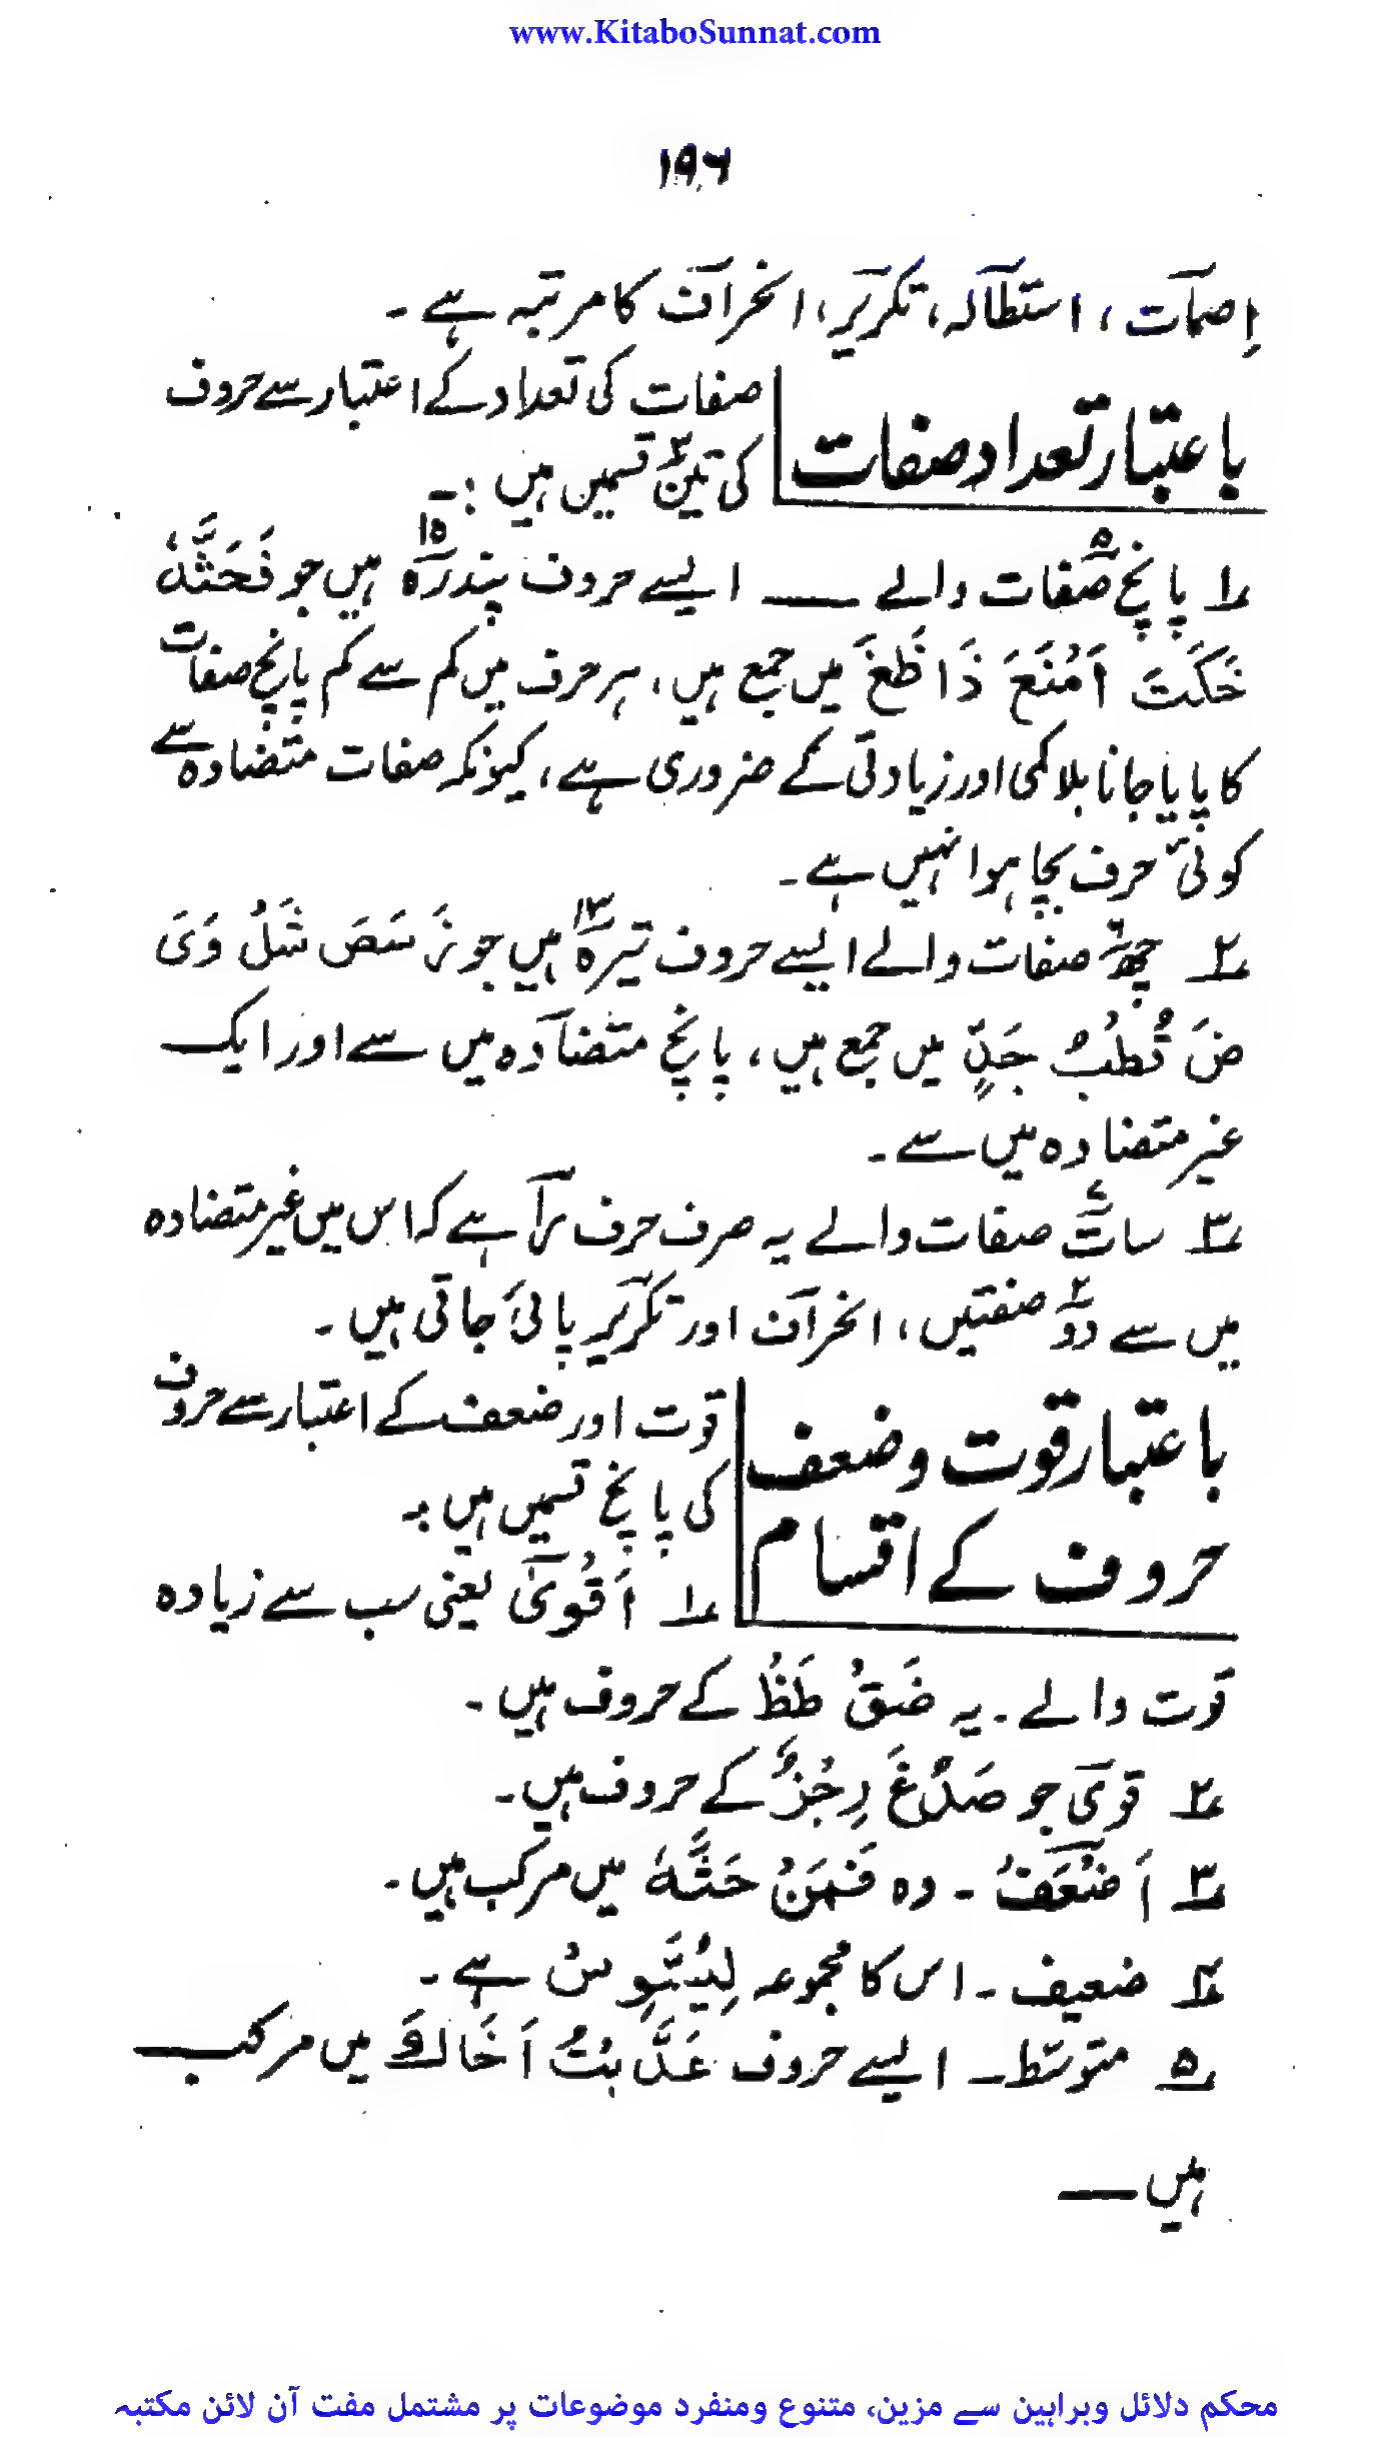 www.KitaboSunnat.com
۱۹۶
اِصمات ، استطالہ ، تکریر ، انحراف کا مرتبہ ہے ۔
باعتبار تعداد صفات
صفات کی تعداد کے اعتبار سے حروف
کی تین۳ قسمیں ہیں :۔
۱؍ پانچ۵ صفات والے ــــ ایسے حروف پندرہ۱۵ ہیں جو فَحَثَّہٗ
خَكَتَ اَمْنَعَ ذَا ظَغَ میں جمع ہیں ، ہر حرف میں کم سے کم پانچ صفات
کا پایا جانا بلا کمی اور زیادتی کے ضروری ہے ، کیونکہ صفات متضادہ سے
کوئی حرف بچا ہوا نہیں ہے ۔
۲؍ چھ۶ صفات والے ایسے حروف تیرہ۱۳ ہیں جو زَسَصَ شَلُ وَیَ
ضَ قُطْبُ جَدٍّ میں جمع ہیں ، پانچ متضادہ میں سے اور ایک
غیر متضادہ میں سے ۔
۳؍ سات۷ صفات والے یہ صرف حرف را ہے کہ اس میں غیر متضادہ
میں سے دو۲ صفتیں ، انحراف اور تکریر پائی جاتی ہیں ۔
باعتبار قوت و ضعف
حروف کے اقسام
قوت اور ضعف کے اعتبار سے حروف
کی پانچ قسمیں ہیں :۔
۱؍ اَقْویٰ یعنی سب سے زیادہ
قوت والے ۔ یہ ضَقُ طَظُ کے حروف ہیں ۔
۲؍ قوی جو صَدْغَ رِجْزُ کے حروف ہیں ۔
۳؍ اَضْعَفْ ۔ وہ فَهَمَنْ حَثَّهٗ میں مرکب ہیں ۔
۴؍ ضعیف ۔ اس کا مجموعہ ہے ۔
۵؍ متوسط ۔ ایسے حروف اَخَاكَ میں مرکب
ہیں ــــ
محکم دلائل وبراہین سے مزین، متنوع ومنفرد موضوعات پر مشتمل مفت آن لائن مکتبہ